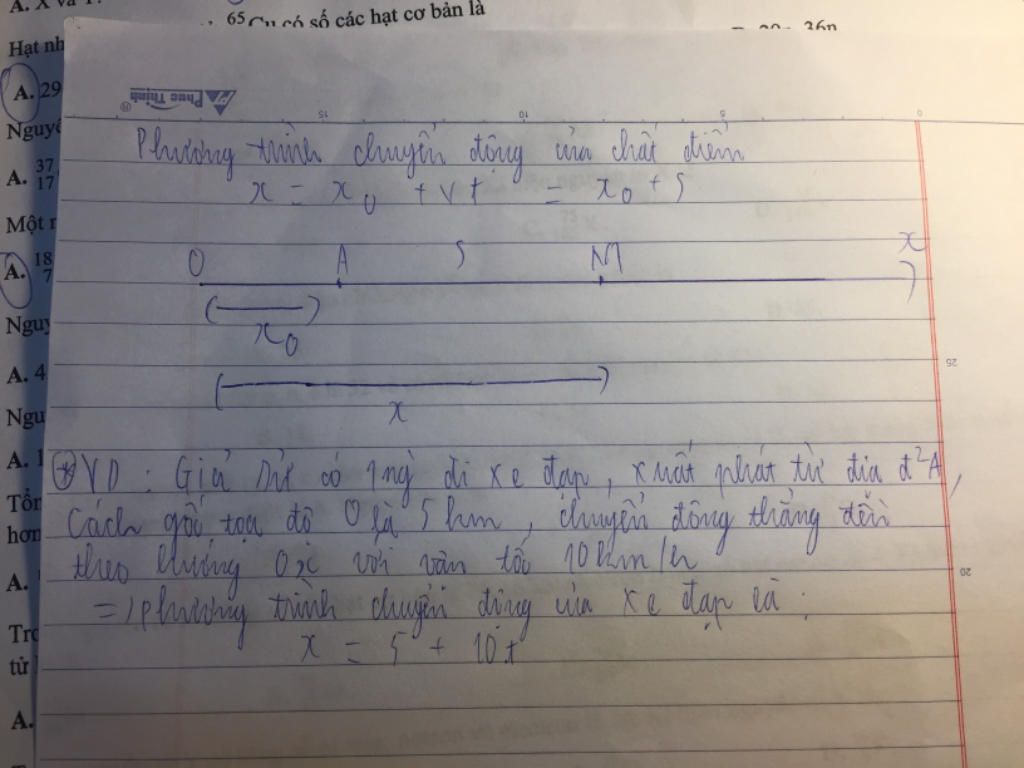 A. X và Y.
65Cu có số các hạt cơ bản là
Hạt nh
A. 29
Nguyê
A. 37 17
Một n
A. 18 7
Nguy
A. 4
Ngu
A. 1
Tổn
hơn
A.
Trc
tử
A.
Phuc Thinh
15 10 5 0
25
20
Phương trình chuyển động của chất điểm
x = x0 + vt = x0 + s
O A s M x
x0
x
VD : Giả sử có 1 ng đi xe đạp, xuất phát từ địa đ2 A,
cách gốc tọa độ O là 5 km, chuyển động thẳng đều
theo hướng Ox với vận tốc 10 km/h
=> phương trình chuyển động của xe đạp là :
x = 5 + 10t